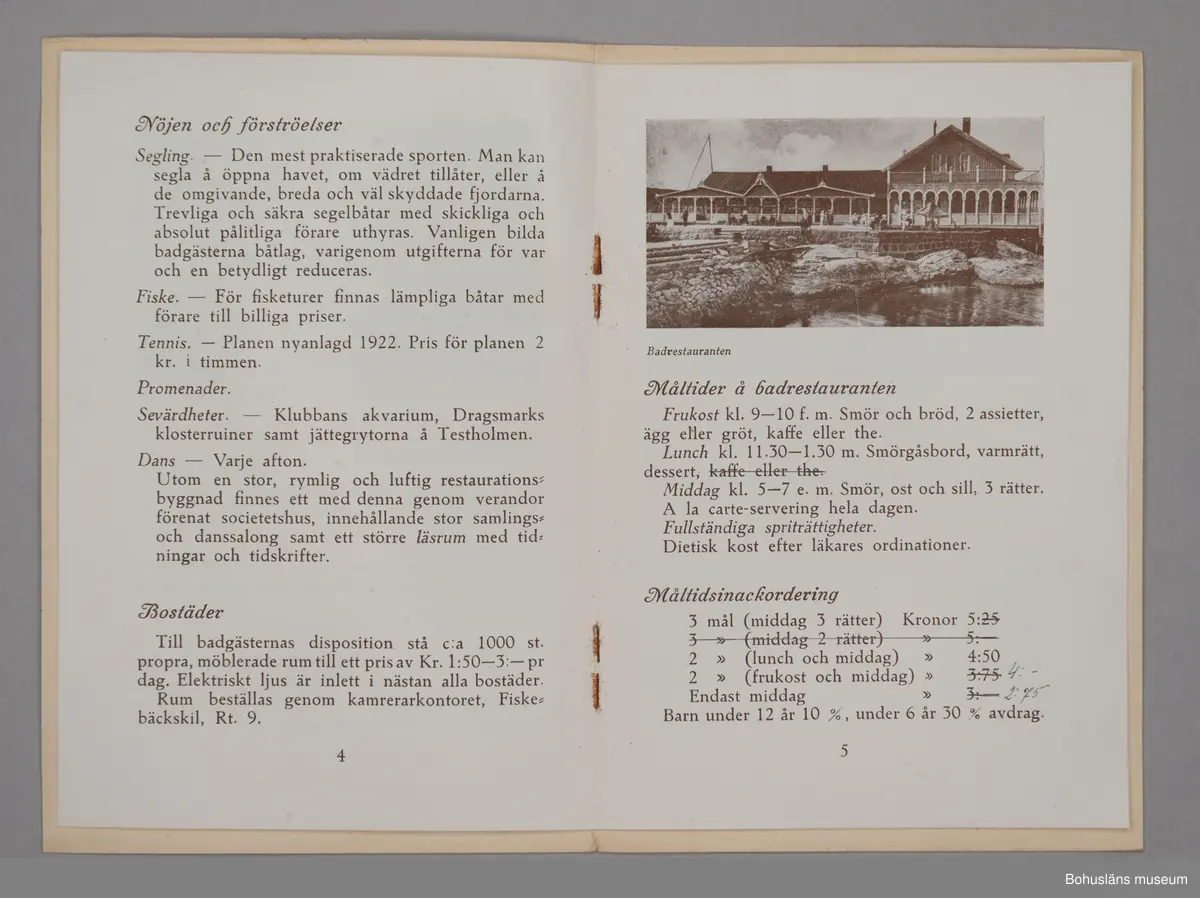 Nöjen och förströelser
Segling. — Den mest praktiserade sporten. Man kan
segla å öppna havet, om vädret tillåter, eller å
de omgivande, breda och väl skyddade fjordarna.
Trevliga och säkra segelbåtar med skickliga och
absolut pålitliga förare uthyras. Vanligen bilda
badgästerna båtlag, varigenom utgifterna för var
och en betydligt reduceras.
Fiske. — För fisketurer finnas lämpliga båtar med
förare till billiga priser.
Tennis. — Planen nyanlagd 1922. Pris för planen 2
kr. i timmen.
Promenader.
Sevärdheter. — Klubbans akvarium, Dragsmarks
klosterruiner samt jättegrytorna å Testholmen.
Dans — Varje afton.
Utom en stor, rymlig och luftig restaurations-
byggnad finnes ett med denna genom verandor
förenat societetshus, innehållande stor samlings-
och danssalong samt ett större läsrum med tid-
ningar och tidskrifter.
Bostäder
Till badgästernas disposition stå c:a 1000 st.
propra, möblerade rum till ett pris av Kr. 1:50—3:— pr
dag. Elektriskt ljus är inlett i nästan alla bostäder.
Rum beställas genom kamrerarkontoret, Fiske-
bäckskil, Rt. 9.
4
Badrestauranten
Måltider å badrestauranten
Frukost kl. 9—10 f. m. Smör och bröd, 2 assietter,
ägg eller gröt, kaffe eller the.
Lunch kl. 11.30—1.30 m. Smörgåsbord, varmrätt,
dessert, kaffe eller the.
Middag kl. 5—7 e. m. Smör, ost och sill, 3 rätter.
A la carte-servering hela dagen.
Fullständiga spriträttigheter.
Dietisk kost efter läkares ordinationer.
Måltidsinackordering
3 mål (middag 3 rätter) Kronor 5:25
3 » (middag 2 rätter) » 5:—
2 » (lunch och middag) » 4:50
2 » (frukost och middag) » 3:75 4:-
Endast middag » 3:— 2:75
Barn under 12 år 10 %, under 6 år 30 % avdrag.
5
Bohusläns museum